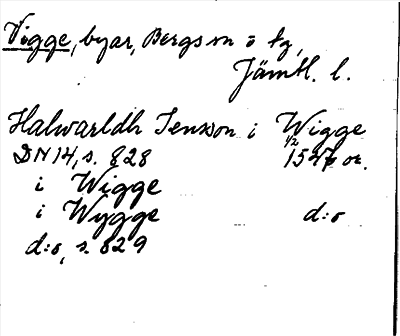 Vigge, byar, Bergs sn o tg,
Jämtl. l.
Halwarldh Jensson i Wigge
DN 14, s. 828 1/2 1547 or.
i Wigge
i Wygge d:o
d:o, s. 829